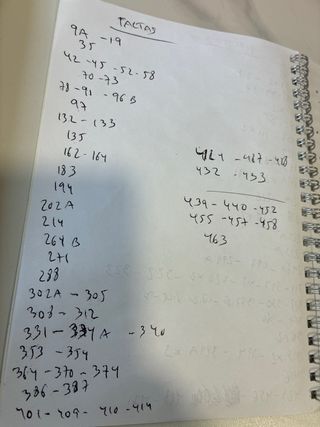 FALTAS
9A - 19
35
42 - 45 - 52 - 58
70 - 73
78 - 91 - 96 B
97
132 - 133
135
162 - 164
183
194
202 A
214
264 B
271
288
302A - 305
308 - 312
331 - 334 A - 340
353 - 354
364 - 370 - 374
386 - 387
401 - 409 - 410 - 414
424 - 427 - 428
432 - 433
439 - 440 - 452
455 - 457 - 458
463